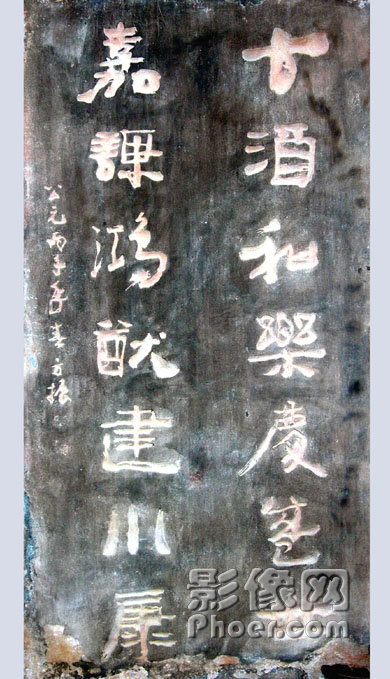 酒和樂慶
嘉謀鴻猷建小康
公元丙子年春方振
影像网
Phoer.com